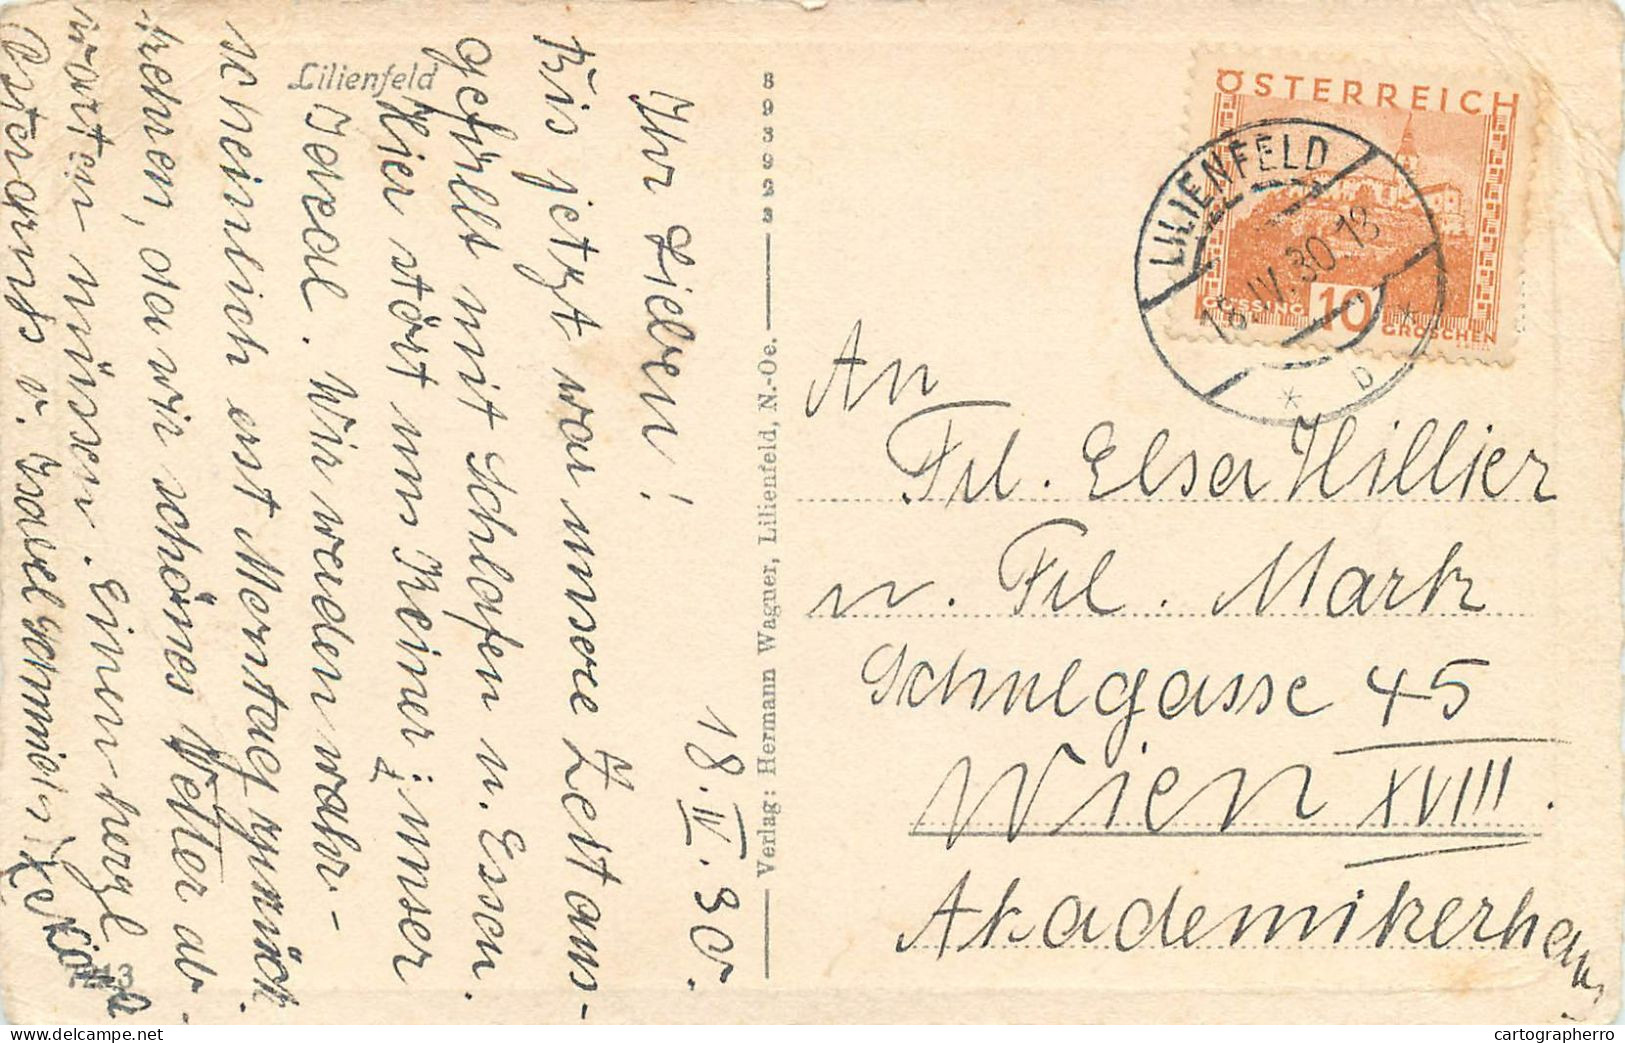 Lilienfeld
Ihr Lieben!
18.IV.30.
Bis jetzt war unsere Zeit aus-
gefüllt mit Schlafen u. Essen.
Hier stört uns Keiner; unser
Ideal. Wir werden wahr-
scheinlich erst Montag zurück
kehren, da wir schönes Wetter ab-
warten müssen. Einen herzl
Ostergruß v.
Verlag: Hermann Wagner, Lilienfeld, N.-Oe.
ÖSTERREICH
GÜSSING 10 GROSCHEN
LILIENFELD
18.IV.30.18
* D *
An
Frl. Elsa Hillier
u. Frl. Mark
Schulgasse 45
Wien XVIII.
Akademikerhaus
cartographerro